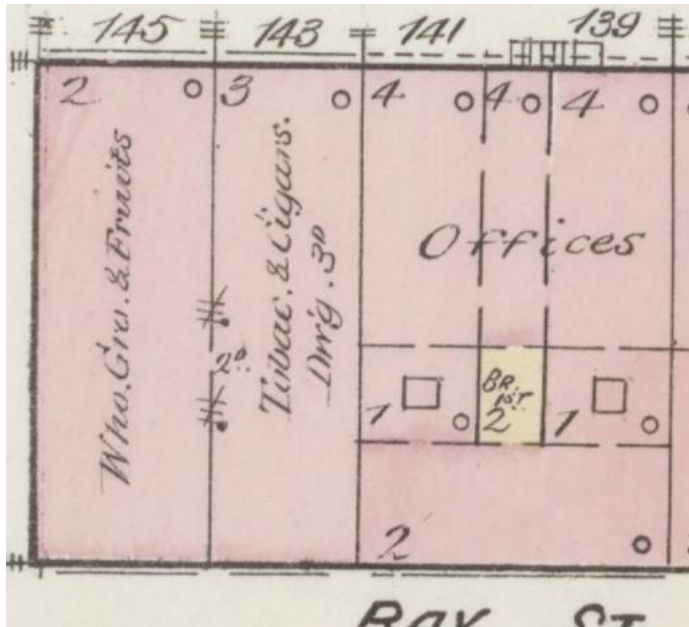 145 143 141 139
2 3 4 4 4
Who. Gro. & Fruits
Tobac. & Cigars.
Dwg. 3D
Offices
2D
1 BR 1ST 2 1
2
BAY ST